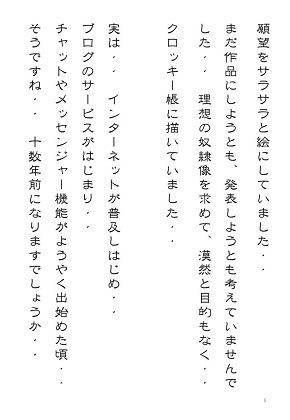 願望をサラサラと絵にしていました・・
まだ作品にしようとも、発表しようとも考えていませんで
した・・　理想の奴隷像を求めて、漠然と目的もなく・・
クロッキー帳に描いていました・・
実は・・　インターネットが普及しはじめ・・
ブログのサービスがはじまり・・
チャットやメッセンジャー機能がようやく出始めた頃・・
そうですね・・　十数年前になりますでしょうか・・